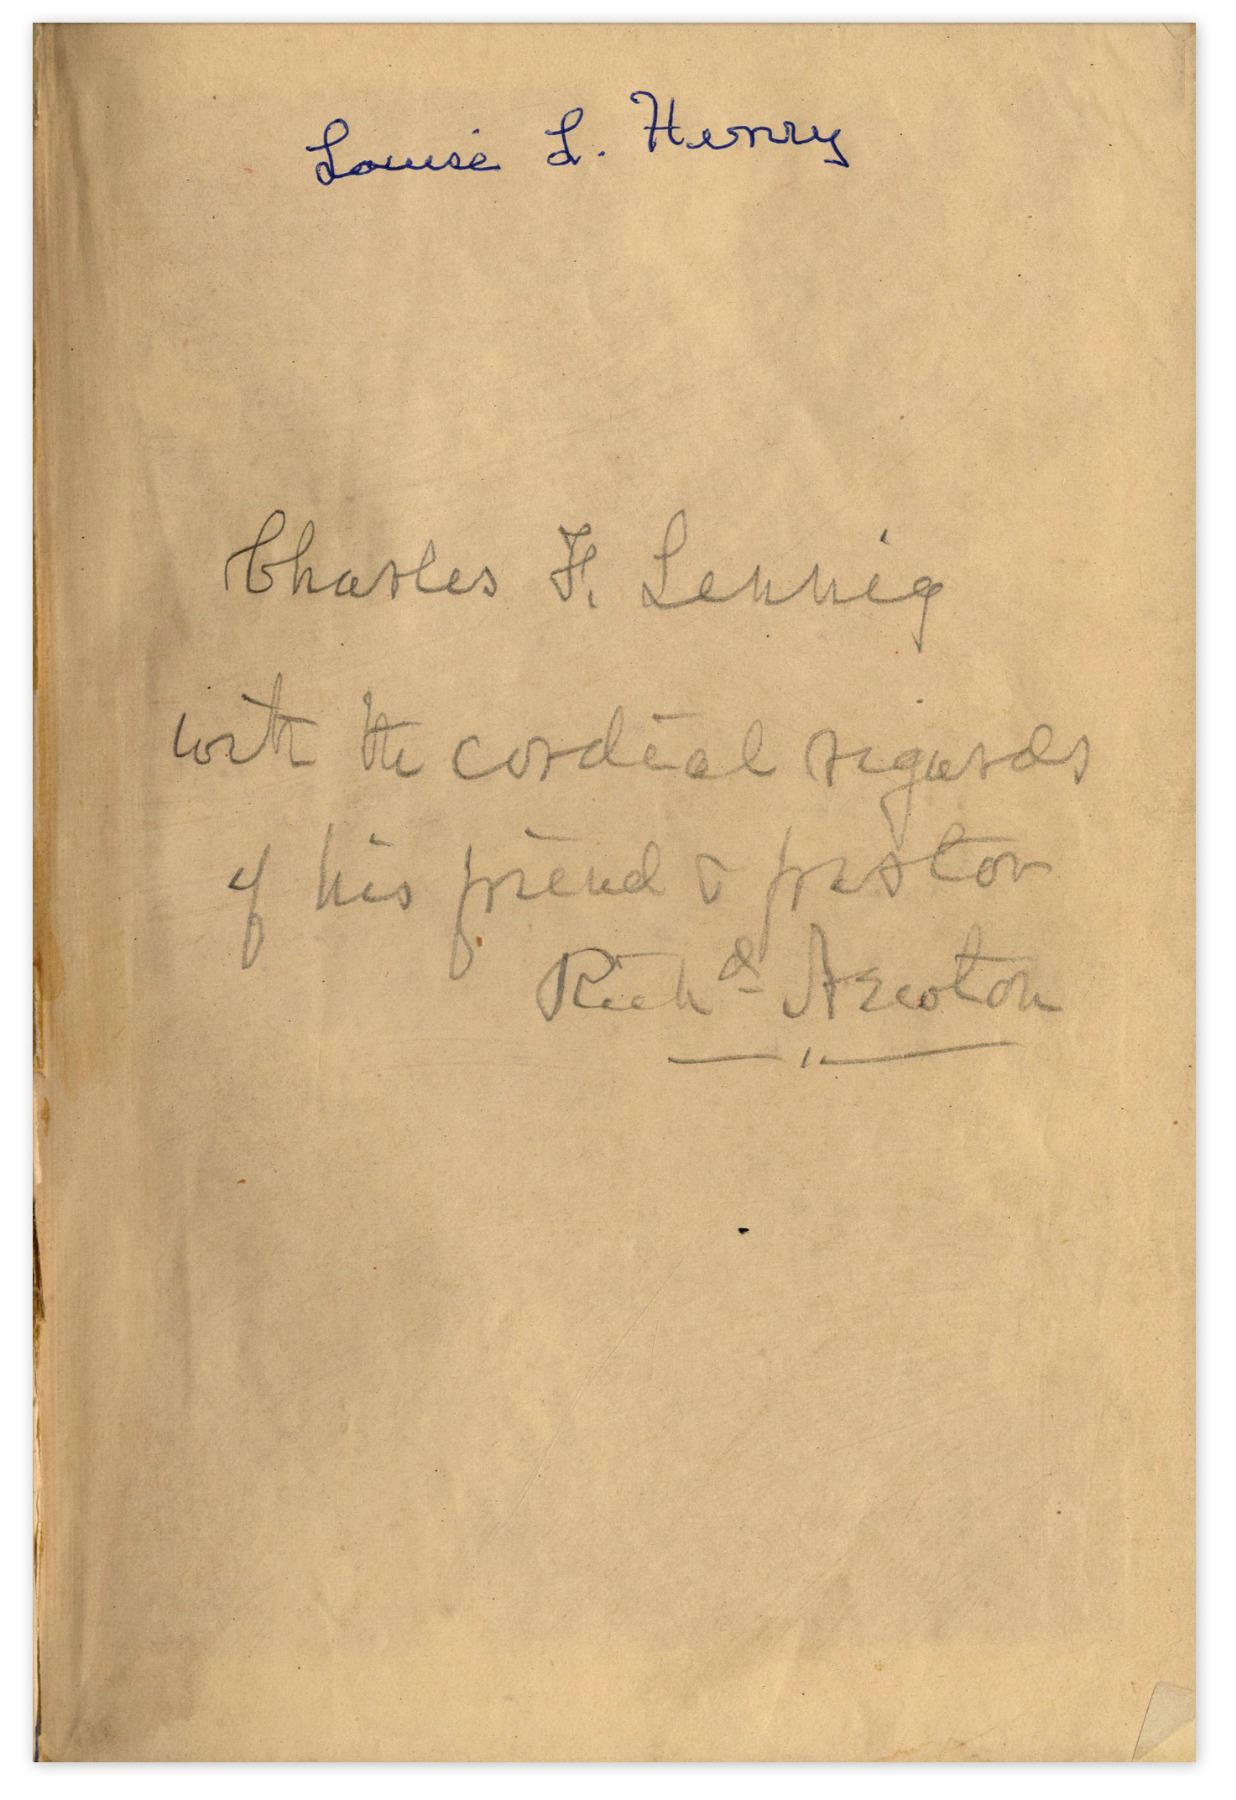 Louise L. Henry
Charles F. Lennig
with the cordial regards
of his friend & pastor
Richd Newton